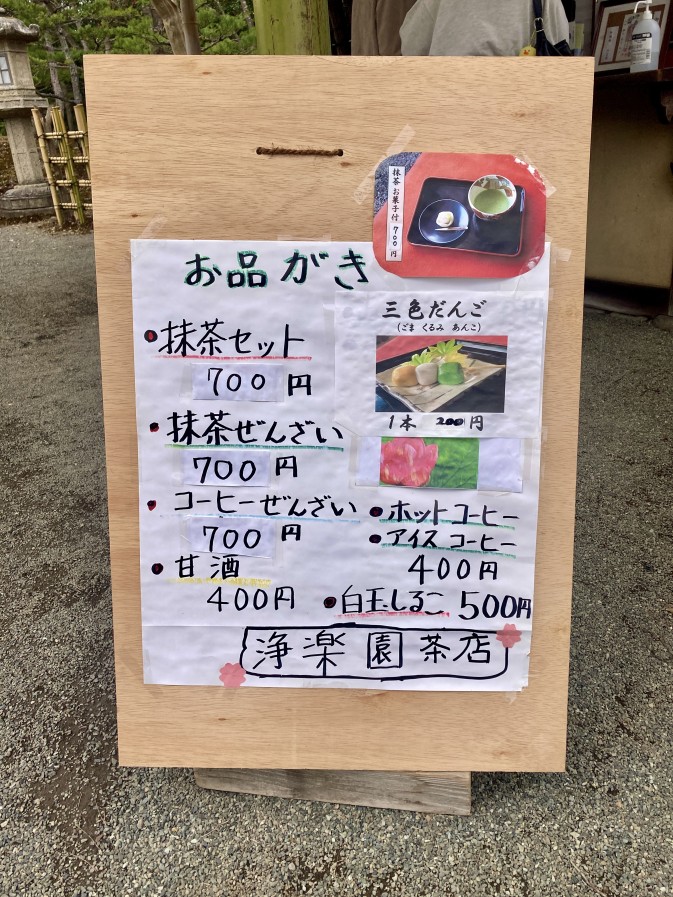 お品がき
抹茶お菓子付700円
・抹茶セット
700円
・抹茶ぜんざい
700円
・コーヒーぜんざい
700円
・甘酒
400円
三色だんご
(ごま くるみ あんこ)
1本 200円
・ホットコーヒー
・アイスコーヒー
400円
・白玉しるこ 500円
浄楽園茶店